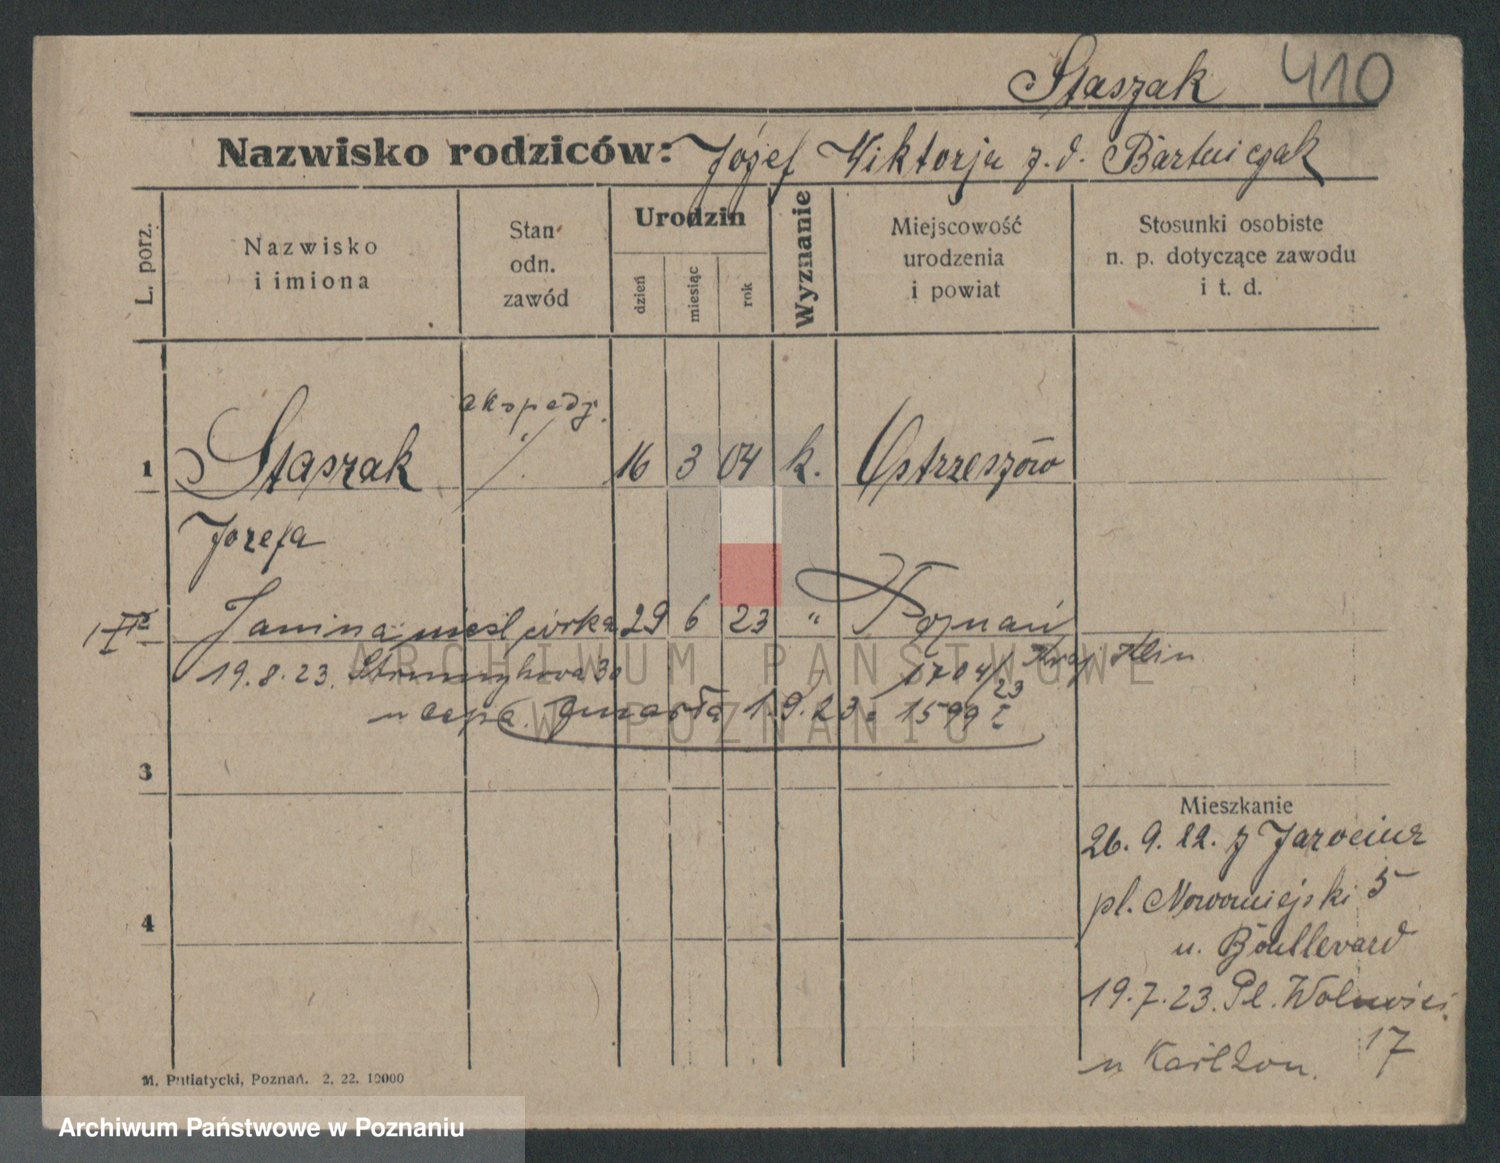 Staszak 410
Nazwisko rodziców: Józef Wiktorja z.d. Bartniczak
L. porz.
Nazwisko
i imiona
Stan
odn.
zawód
Urodzin
dzień
miesiąc
rok
Wyznanie
Miejscowość
urodzenia
i powiat
Stosunki osobiste
n. p. dotyczące zawodu
i t. d.
ekspedj.
1 Staszak 16 3 04 k. Ostrzeszów
Józefa
Janina nieśl. córka 29 6 23 " Poznań
19.8.23. 30 1704/23
u zmarła 1.9.23. 1599
3
Mieszkanie
26. 9. 22. z Jarocina
4
pl. Nowomiejski 5
u. Boullevard
19.7.23. Pl. Wolności
17
u
M. Putiatycki, Poznań. 2. 22. 10000
ARCHIWUM PAŃSTWOWE
W POZNANIU
Archiwum Państwowe w Poznaniu